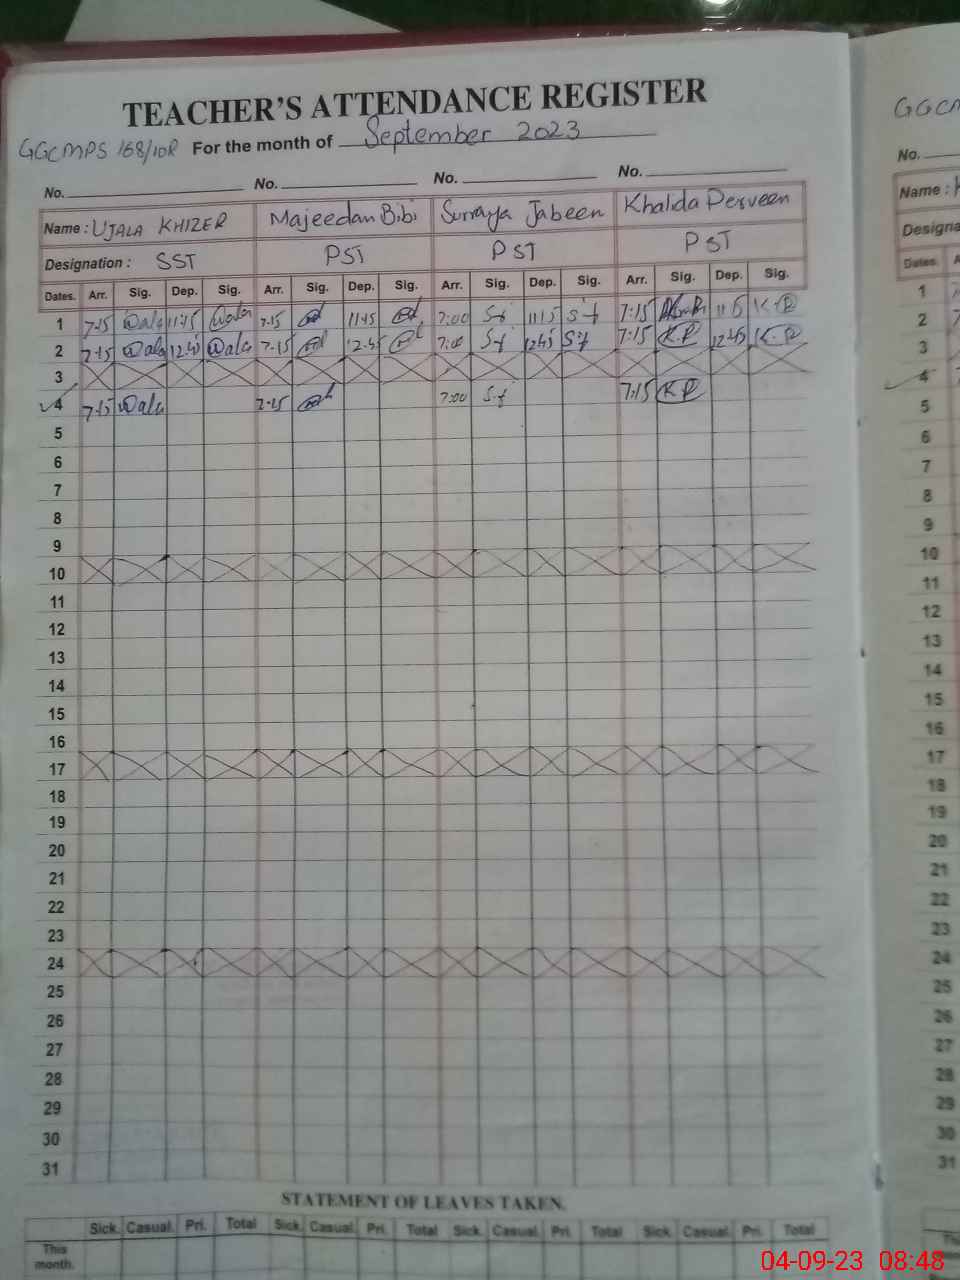 TEACHER'S ATTENDANCE REGISTER
GGCMPS 168/10R For the month of September 2023
GGCM
No. No. No. No. No.
Name : UJALA KHIZER Majeedan Bibi Surrayya Jabeen Khalida Perveen Name :
Designation : SST PST PST PST Designa
Dates. Arr. Sig. Dep. Sig. Arr. Sig. Dep. Sig. Arr. Sig. Dep. Sig. Arr. Sig. Dep. Sig. Dates. A
1 7:15 11:15 7:15 11:15 7:00 11:15 7:15 11:15 K.P 1
2 7:15 12:45 7:15 12:45 7:00 12:45 7:15 K.P 12:45 K.P 2
3 3
4 7:15 7:15 7:00 7:15 K.P 4
5 5
6 6
7 7
8 8
9 9
10 10
11 11
12 12
13 13
14 14
15 15
16 16
17 17
18 18
19 19
20 20
21 21
22 22
23 23
24 24
25 25
26 26
27 27
28 28
29 29
30 30
31 31
STATEMENT OF LEAVES TAKEN.
Sick. Casual. Pri. Total Sick. Casual. Pri. Total Sick. Casual. Pri. Total Sick. Casual. Pri. Total
This month.
04-09-23 08:48